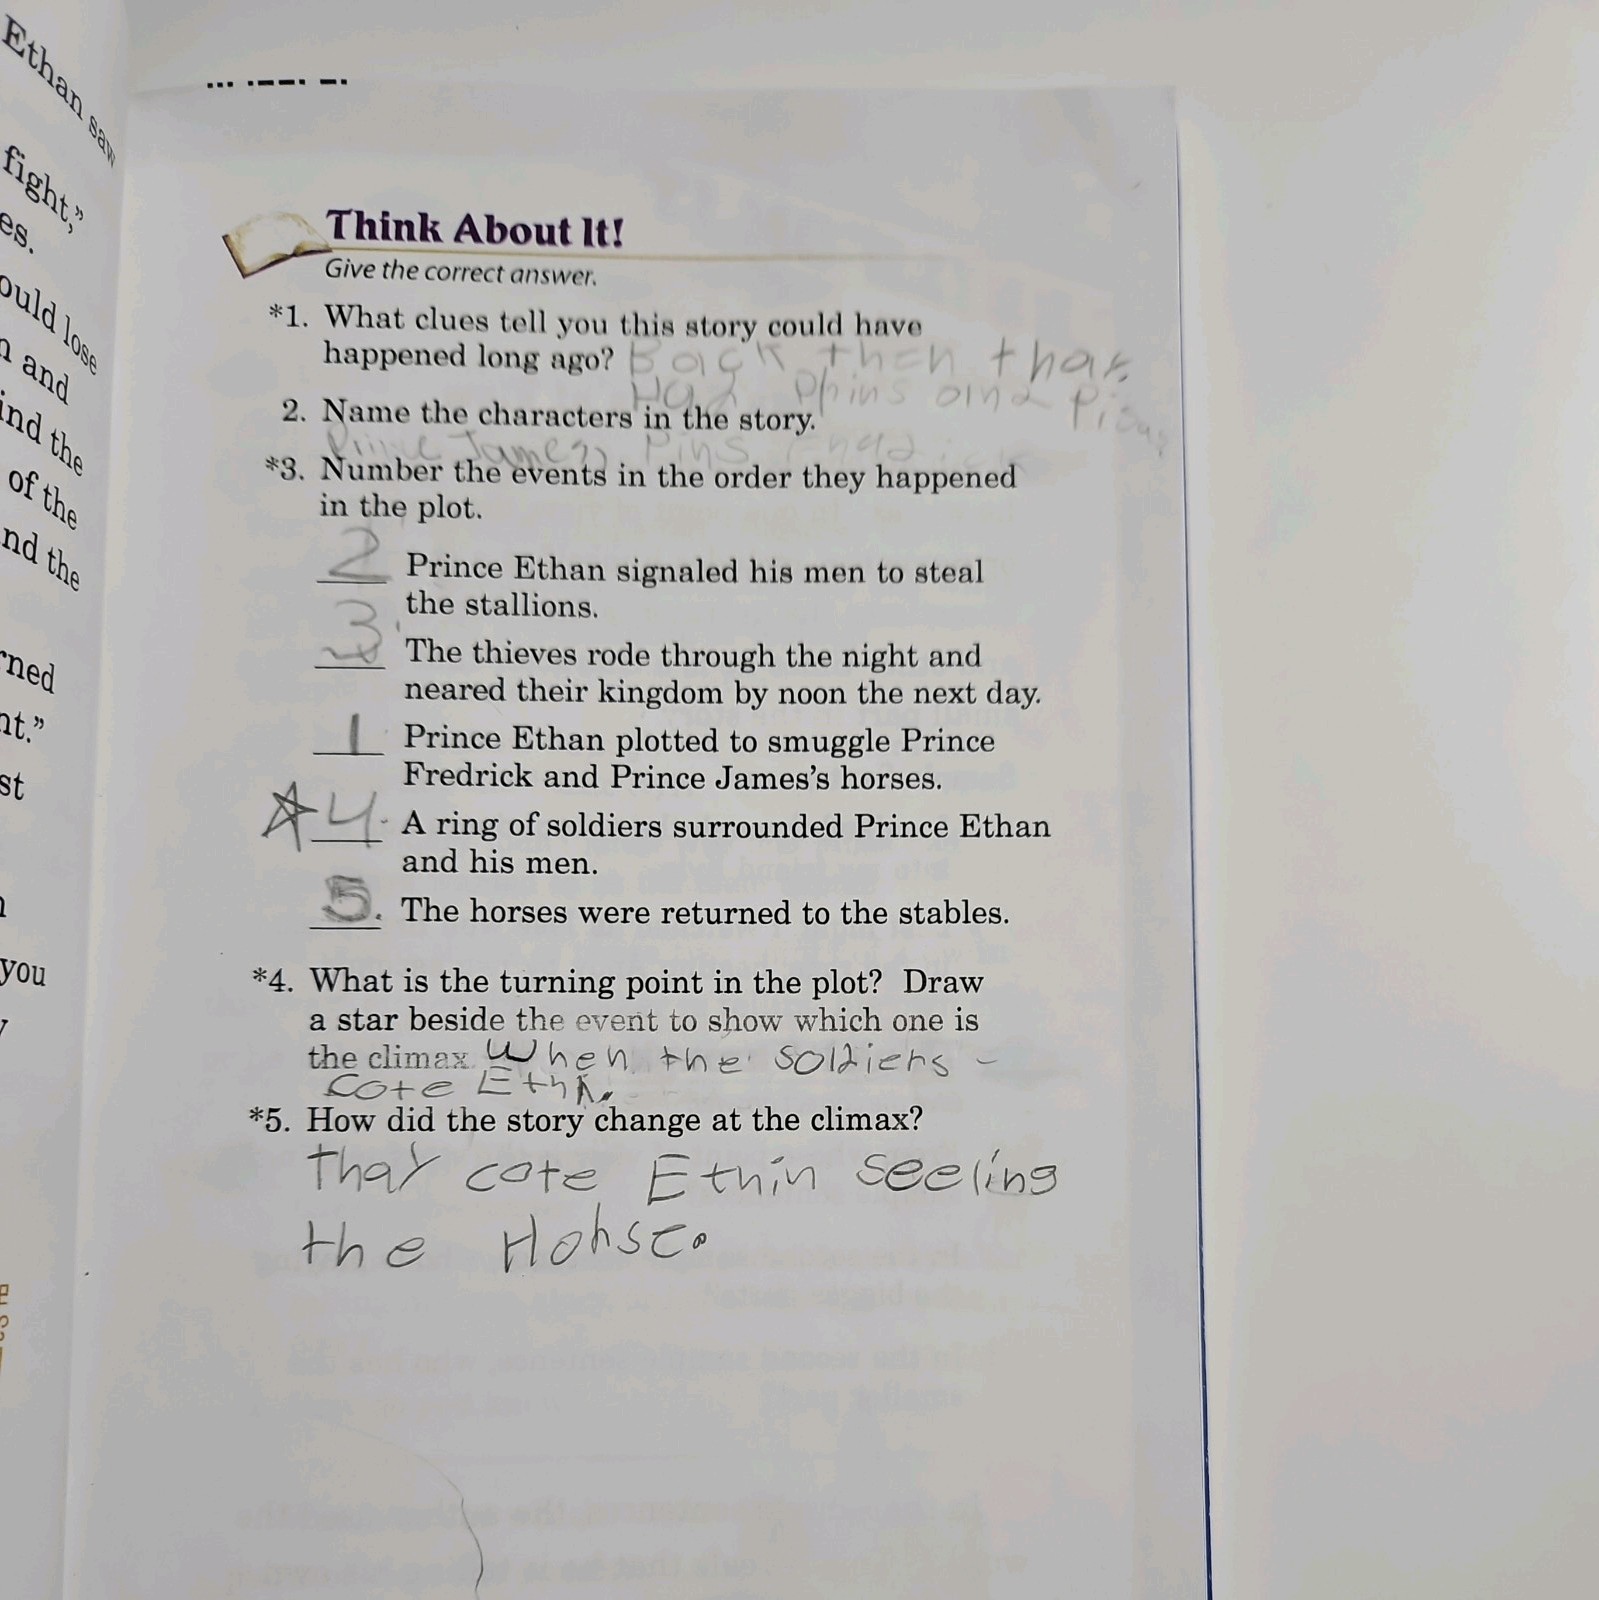 Ethan saw
fight,"
es.
ould lose
n and
ind the
of the
nd the
rned
nt."
st
you
Think About It!
Give the correct answer.
*1. What clues tell you this story could have
happened long ago? Back then thay
Had Phins and
2. Name the characters in the story.
Prince James, Pins
*3. Number the events in the order they happened
in the plot.
2 Prince Ethan signaled his men to steal
the stallions.
3 The thieves rode through the night and
neared their kingdom by noon the next day.
1 Prince Ethan plotted to smuggle Prince
Fredrick and Prince James's horses.
4. A ring of soldiers surrounded Prince Ethan
and his men.
5. The horses were returned to the stables.
*4. What is the turning point in the plot? Draw
a star beside the event to show which one is
the climax. When the soldiers -
cote Ethn.
*5. How did the story change at the climax?
Thay cote Ethin seeling
the Hohse.